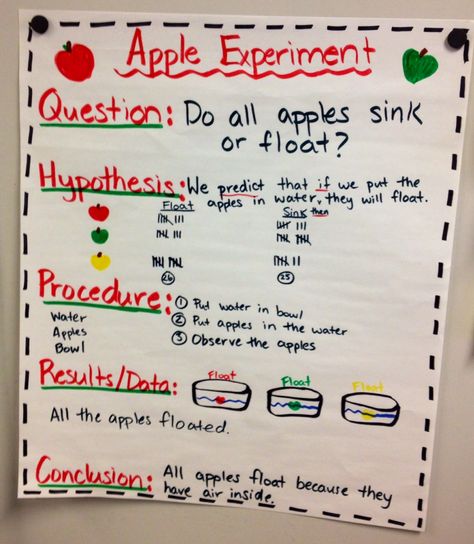 Apple Experiment
Question: Do all apples sink
or float?
Hypothesis: We predict that if we put the
apples in water, they will float.
then
Float Sink
26 25
Procedure: ① Put water in bowl
Water ② Put apples in the water
Apples ③ Observe the apples
Bowl
Results/Data: Float Float Float
All the apples floated.
Conclusion: All apples float because they
have air inside.